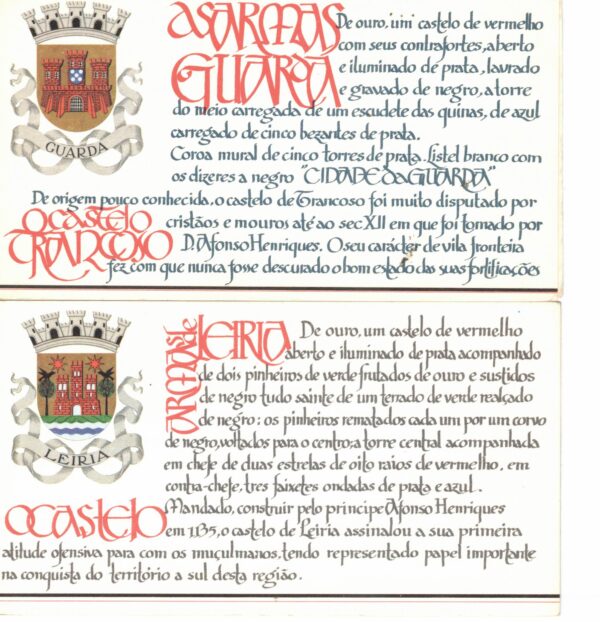 AS ARMAS
GUARDA
De ouro, um castelo de vermelho
com seus contrafortes, aberto
e iluminado de prata, lavrado
e gravado de negro, a torre
do meio carregada de um escudete das quinas, de azul
carregado de cinco bezantes de prata.
Coroa mural de cinco torres de prata. Listel branco com
os dizeres a negro "CIDADE da GUARDA"
GUARDA
De origem pouco conhecida, o castelo de Trancoso foi muito disputado por
O CASTELO
TRANCOSO
cristãos e mouros até ao sec XII em que foi tomado por
D. Afonso Henriques. O seu carácter de vila fronteira
fez com que nunca fosse descurado o bom estado das suas fortificações
ARMAS de LEIRIA
De ouro, um castelo de vermelho
aberto e iluminado de prata acompanhado
de dois pinheiros de verde frutados de ouro e sustidos
de negro tudo sainte de um terrado de verde realçado
de negro: os pinheiros rematados cada um por um corvo
de negro, voltados para o centro; a torre central acompanhada
em chefe de duas estrelas de oito raios de vermelho, em
contra-chefe, tres faixetes ondadas de prata e azul.
LEIRIA
O CASTELO
Mandado, construir pelo principe Afonso Henriques
em 1135, o castelo de Leiria assinalou a sua primeira
atitude ofensiva para com os muçulmanos, tendo representado papel importante
na conquista do território a sul desta região.